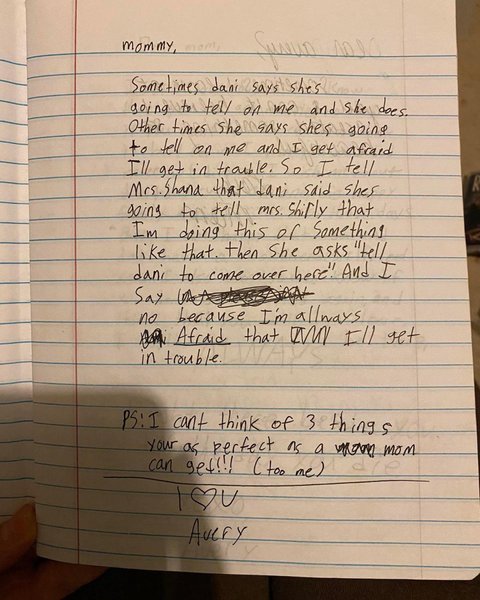 mommy,
Sometimes dani says shes
going to tell on me and she does.
Other times she says shes going
to tell on me and I get afraid
I'll get in trouble. So I tell
Mrs. Shana that dani said shes
going to tell mrs. Shifly that
Im doing this of something
like that. then she asks "tell
dani to come over here". And I
Say
no because I'm allways
Afraid that I'll get
in trouble.
PS: I cant think of 3 things
your as perfect as a mom
can get!!! (too me)
I ♡ U
Avery